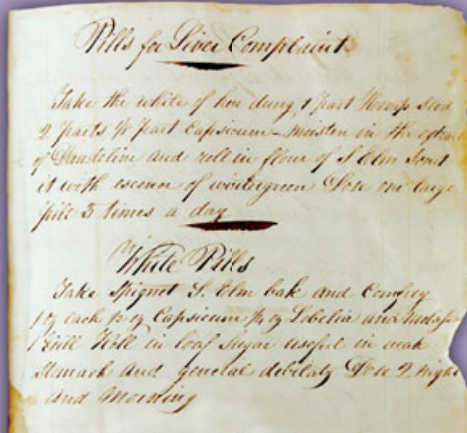 Pills for Liver Complaint
Take the white of hen dung 1 part Hemp seed
2 parts ½ part Capsicum - moisten in the extract
of Dandelion and roll in flour of S Elm Scent
it with essence of wintergreen Dose one large
pill 3 times a day
White Pills
Take Spignet S. Elm bak and Comfrey
1 oz each ½ oz Capsicum ¼ oz Lobelia and
Roll in loaf Sugar useful in weak
Stomach and general debilaty Dose 2 night
and morning